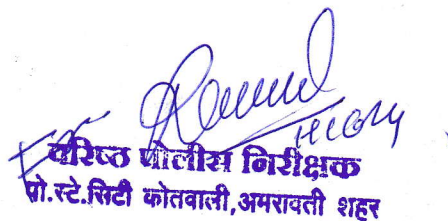 वरिष्ठ पोलीस निरीक्षक
पो.स्टे.सिटी कोतवाली,अमरावती शहर